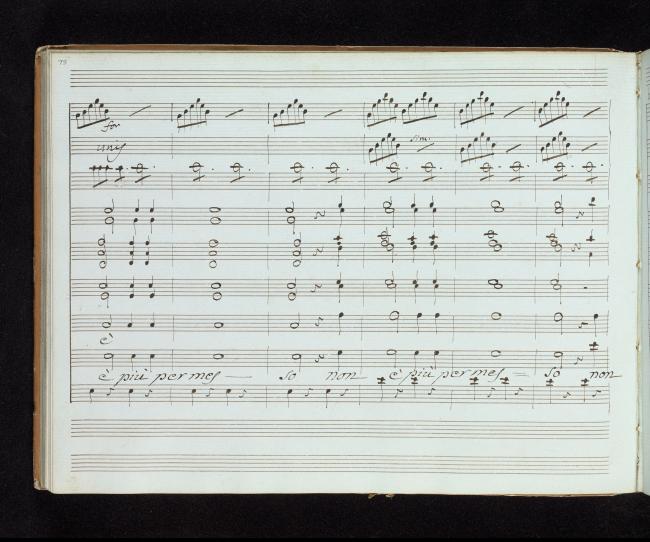 for
unis
sim.
è
è più permes — so non è più permes = so non